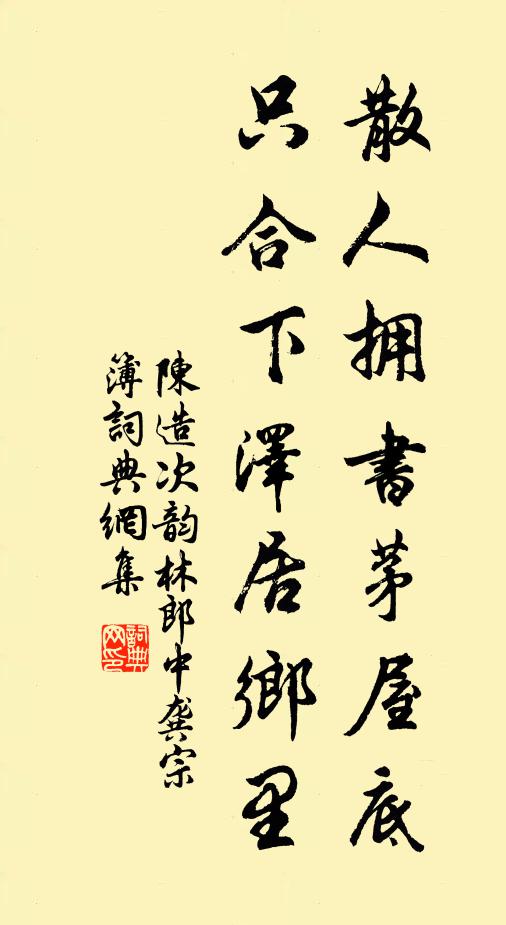 散人拥書茅屋底
只合下澤居鄉里
陳造次韵林郎中龚宗
簿詞典網集
詞典网印